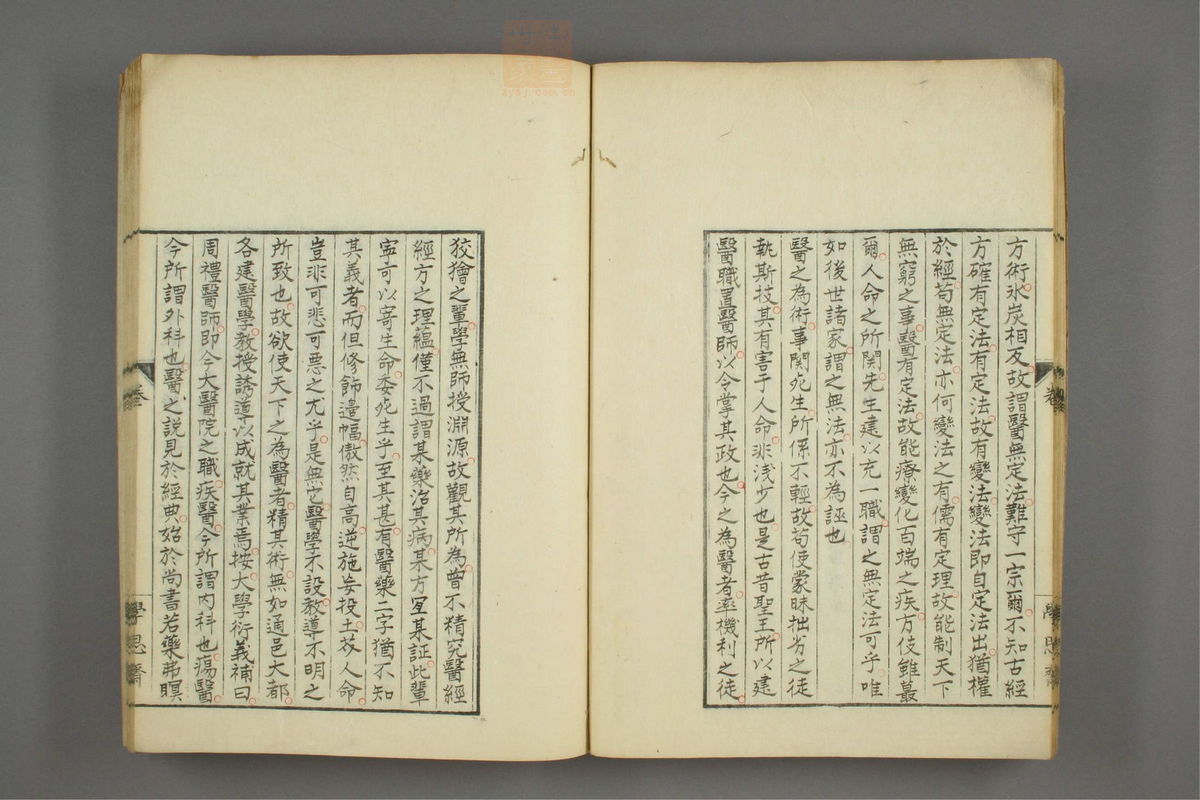 方術氷炭相反故謂醫無定法難守一宗爾不知古經
方確有定法有定法故有變法變法即自定法出猶權
於經苟無定法亦何變法之有儒有定理故能制天下
無窮之事醫有定法故能療變化百端之疾方伎雖蕞
爾人命之所関先生建以充一職謂之無定法可乎唯
如後世諸家謂之無法亦不為誣也
醫之為術事関死生所係不輕故苟使蒙昧拙劣之徒
執斯技其有害于人命非浅少也是古昔聖王所以建
醫職置醫師以令掌其政也今之為醫者率機利之徒
狡獪之輩學無師授淵源故觀其所為曾不精究醫經
經方之理蘊僅不過謂某藥治某病某方宜某証此輩
寧可以寄生命委死生乎至其甚有醫藥二字猶不知
其義者而但修飾邉幅傲然自高逆施妄投土芥人命
豈非可悲可悪之尤乎是無它醫學不設教導不明之
所致也故欲使天下之為醫者精其術無如通邑大都
各建醫學教授誘導以成就其業焉按大學衍義補曰
周禮醫師即今大醫院之職疾醫今所謂内科也瘍醫
今所謂外科也醫之説見於經典始於尚書若藥弗瞑
學思齋
學思齋
zysj.com.cn